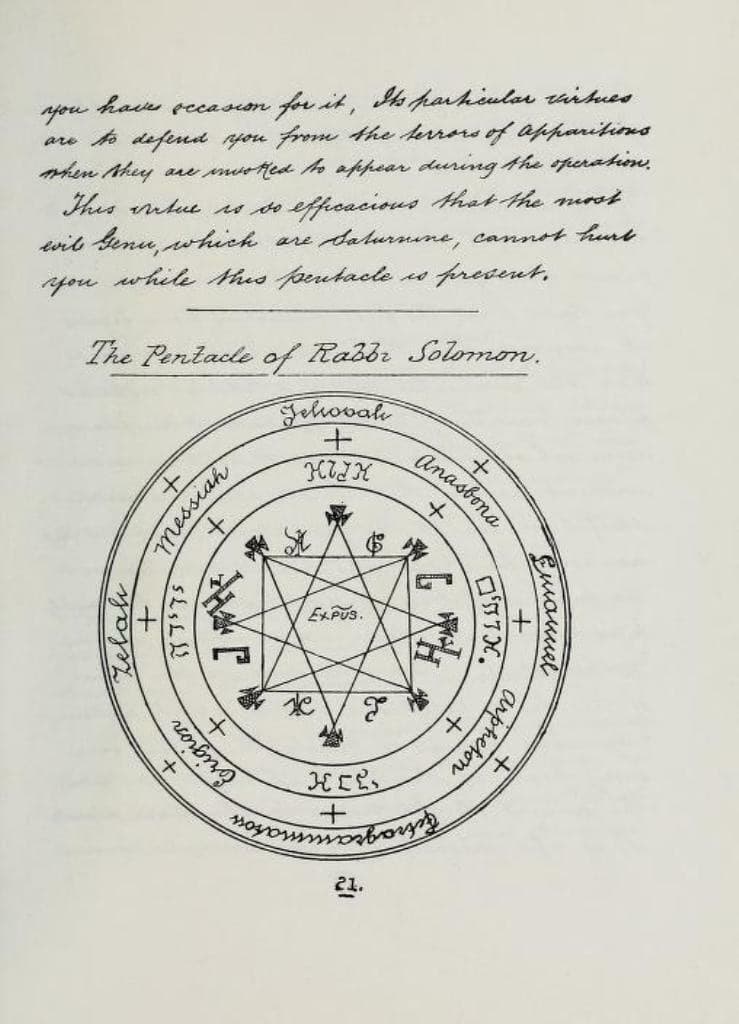 you have occasion for it, Its particular virtues
are to defend you from the terrors of Apparitions
when they are invoked to appear during the operation.
This virtue is so efficacious that the most
evil Genii, which are Saturnine, cannot hurt
you while this pentacle is present.
The Pentacle of Rabbi Solomon.
Jehovah
Messiah
Anasbona
Zelah
Emanuel
Expus.
Erigion
Aripheton
Tetragrammaton
21.